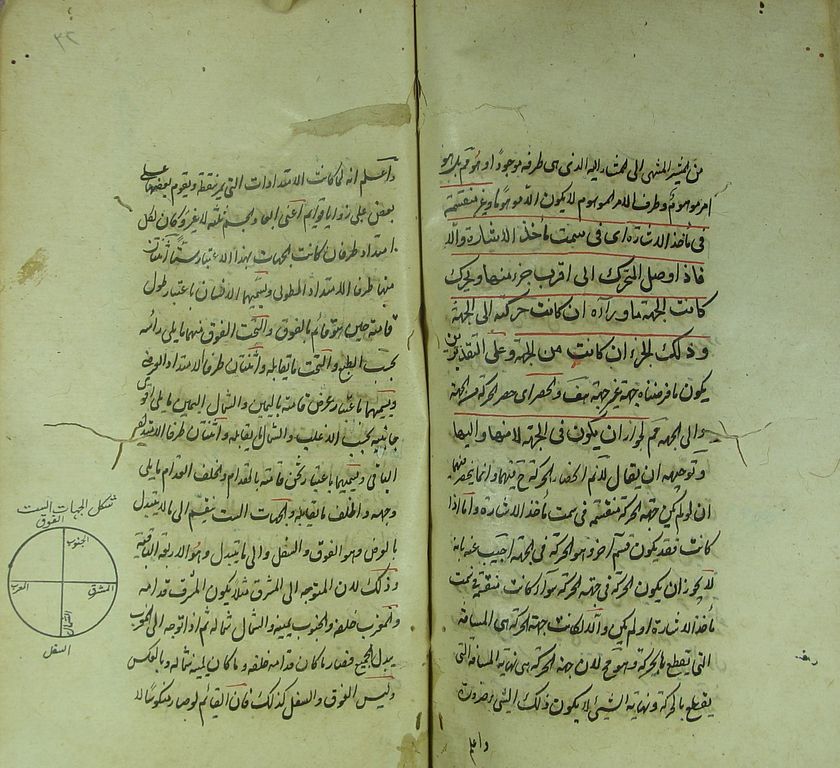 من المشير المنتهى الى المشار اليه الذى هى طرفه موجودًا وهو مم بل هو
امر موهوم وطرف الامر الموهوم لا يكون الا موهومًا وغير منقسمة
فى مأخذ الاشارة اى فى سمت مأخذ الاشارة والا
فاذا وصل المتحرك الى اقرب جزء منها وتحرك
كانت الجهة ما وراءه ان كانت حركته الى الجهة
وذلك الجزء ان كانت من الجهة وعلى التقديرين
يكون ما فرضناه جهة غير جهة هف والحصر اى حصر الحركة من الجهة
والى الجهة مم لجواز ان يكون فى الجهة لا منها واليها
وتوجيهه ان يقال لا نم انحصار الحركة ح فيهما وانما ينحصر فيهما
ان لو لم يكن جهة الحركة منقسمة فى سمت مأخذ الاشارة واما اذا
كانت فقد يكون قسم آخر وهو الحركة فى الجهة اجيب عنه بانه
لا يجوز ان يكون الحركة فى جهة الحركة سواء كانت منقسمة فى سمت
مأخذ الاشارة او لم يكن والا لكانت جهة الحركة هى المسافة
التى تقطع بالحركة وهو مم لان جهة الحركة هى نهاية المسافة التى
يقطع بالحركة ونهاية الشئ لا يكون ذلك الشئ ضرورة
واعلم
واعلم انه لما كانت الامتدادات التى يمر بنقطة ويقوم بعضها على
بعض على زوايا قوائم اعنى ابعاد الجسم ثلثة لا غير وكان لكل
امتداد طرفان كانت الجهات بهذا الاعتبار ستًا اثنتان
منها طرفا الامتداد الطولى ويسميهما الانسان باعتبار طول
قامته حين هو قائم بالفوق والتحت الفوق منهما ما يلى رأسه
بحسب الطبع والتحت ما يقابله واثنتان طرفا الامتداد العرضى
ويسميهما باعتبار عرض قامته باليمين والشمال اليمين ما يلى اقوى
جانبيه بحسب الاغلب والشمال ما يقابله واثنتان طرفا الامتداد
الباقى ويسميهما باعتبار ثخن قامته بالقدام والخلف القدام ما يلى
وجهه والخلف ما يقابله والجهات الست ينقسم الى ما لا يتبدل
بالعرض وهو الفوق والسفل والى ما يتبدل وهو الاربعة الباقية
وذلك لان المتوجه الى المشرق مثلا يكون المشرق قدامه
والمغرب خلفه والجنوب يمينه والشمال شماله ثم اذا توجه الى المغرب
يبدل الجميع فصار ما كان قدامه خلفه وما كان يمينه شماله وبالعكس
وليس الفوق والسفل كذلك فان القائم لو صار منكوسًا لا
شكل الجهات الست
الفوق
الجنوب
المشرق
الغرب
الشمال
السفل
٣٢